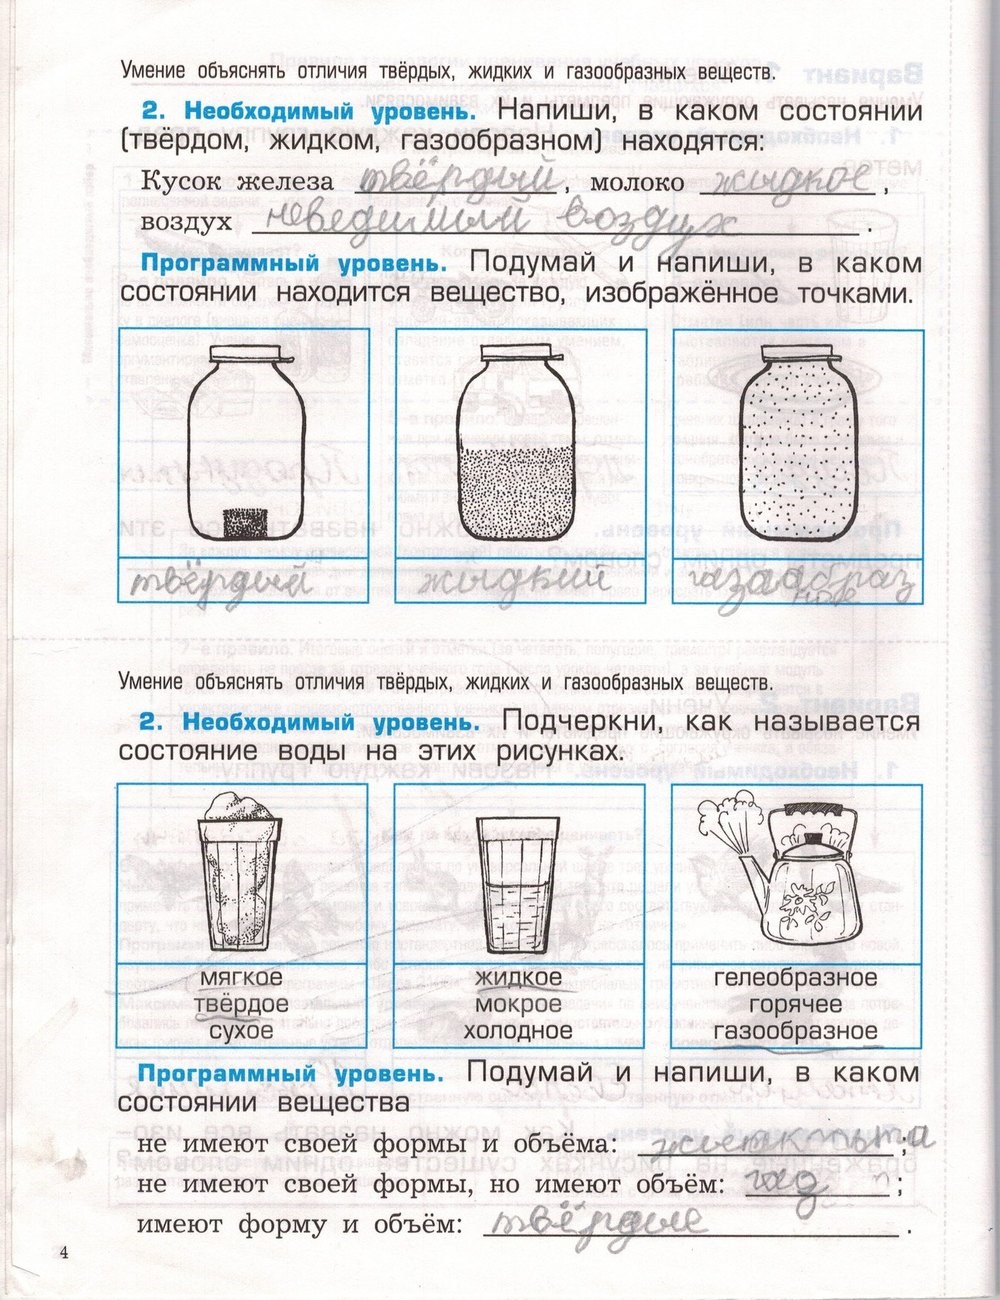 Умение объяснять отличия твёрдых, жидких и газообразных веществ.
2. Необходимый уровень. Напиши, в каком состоянии
(твёрдом, жидком, газообразном) находятся:
Кусок железа твёрдый, молоко жидкое,
воздух неведимый воздух.
Программный уровень. Подумай и напиши, в каком
состоянии находится вещество, изображённое точками.
твёрдый жидкий газаобраз
ное
Умение объяснять отличия твёрдых, жидких и газообразных веществ.
2. Необходимый уровень. Подчеркни, как называется
состояние воды на этих рисунках.
мягкое жидкое гелеобразное
твёрдое мокрое горячее
сухое холодное газообразное
Программный уровень. Подумай и напиши, в каком
состоянии вещества
не имеют своей формы и объёма: ;
не имеют своей формы, но имеют объём: газ ;
имеют форму и объём: твёрдые .
4